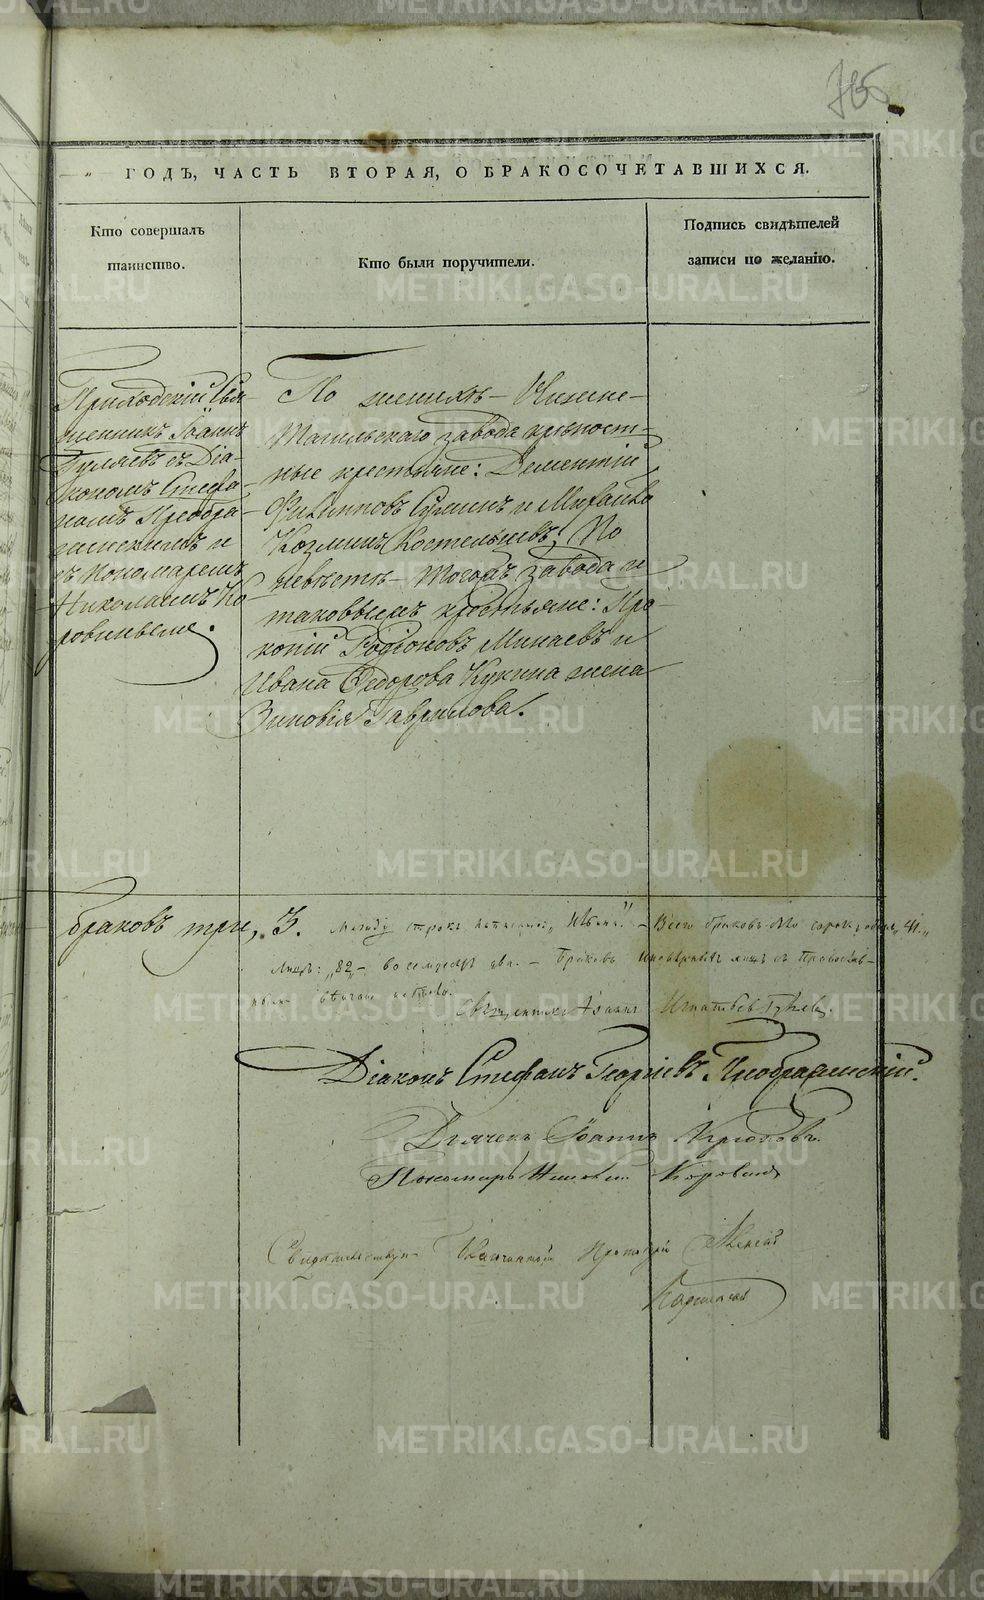 765
ГОДЪ, ЧАСТЬ ВТОРАЯ, О БРАКОСОЧЕТАВШИХСЯ.
Кто совершалъ
таинство.
Кто были поручители.
Подпись свидѣтелей
записи по желанію.
Приходскій Свя-
щенникъ Іоаннъ
Гуляевъ съ Діа-
кономъ Стефа-
номъ Преобра-
женскимъ и
съ Пономаремъ
Николаемъ Ко-
ровинымъ.
По женихѣ – Нижне-
Тагильскаго завода крѣпост-
ные крестьяне: Дементій
Филипповъ и Михайло
Козминъ Костенышевъ; По
невѣстѣ – тогожъ завода и
таковыежъ крестьяне: Про-
копій Родіоновъ Минаевъ и
Ивана Ѳедорова Кукина жена
Зиновія Гаврилова.
браковъ три, 3. Между строкъ – Всего браковъ сорок одинъ „41.„
лицъ: „82„ – восемдесят два. – Браковъ лицъ съ Православ-
ными не было.
Священникъ Іоаннъ Игнатьевъ Гуляев.
Діаконъ Стефанъ Георгіевъ Преображенскій.
Дьячекъ Іоаннъ Крюковъ.
Пономарь Николай Коровинъ
Алексій
METRIKI.GASO-URAL.RU